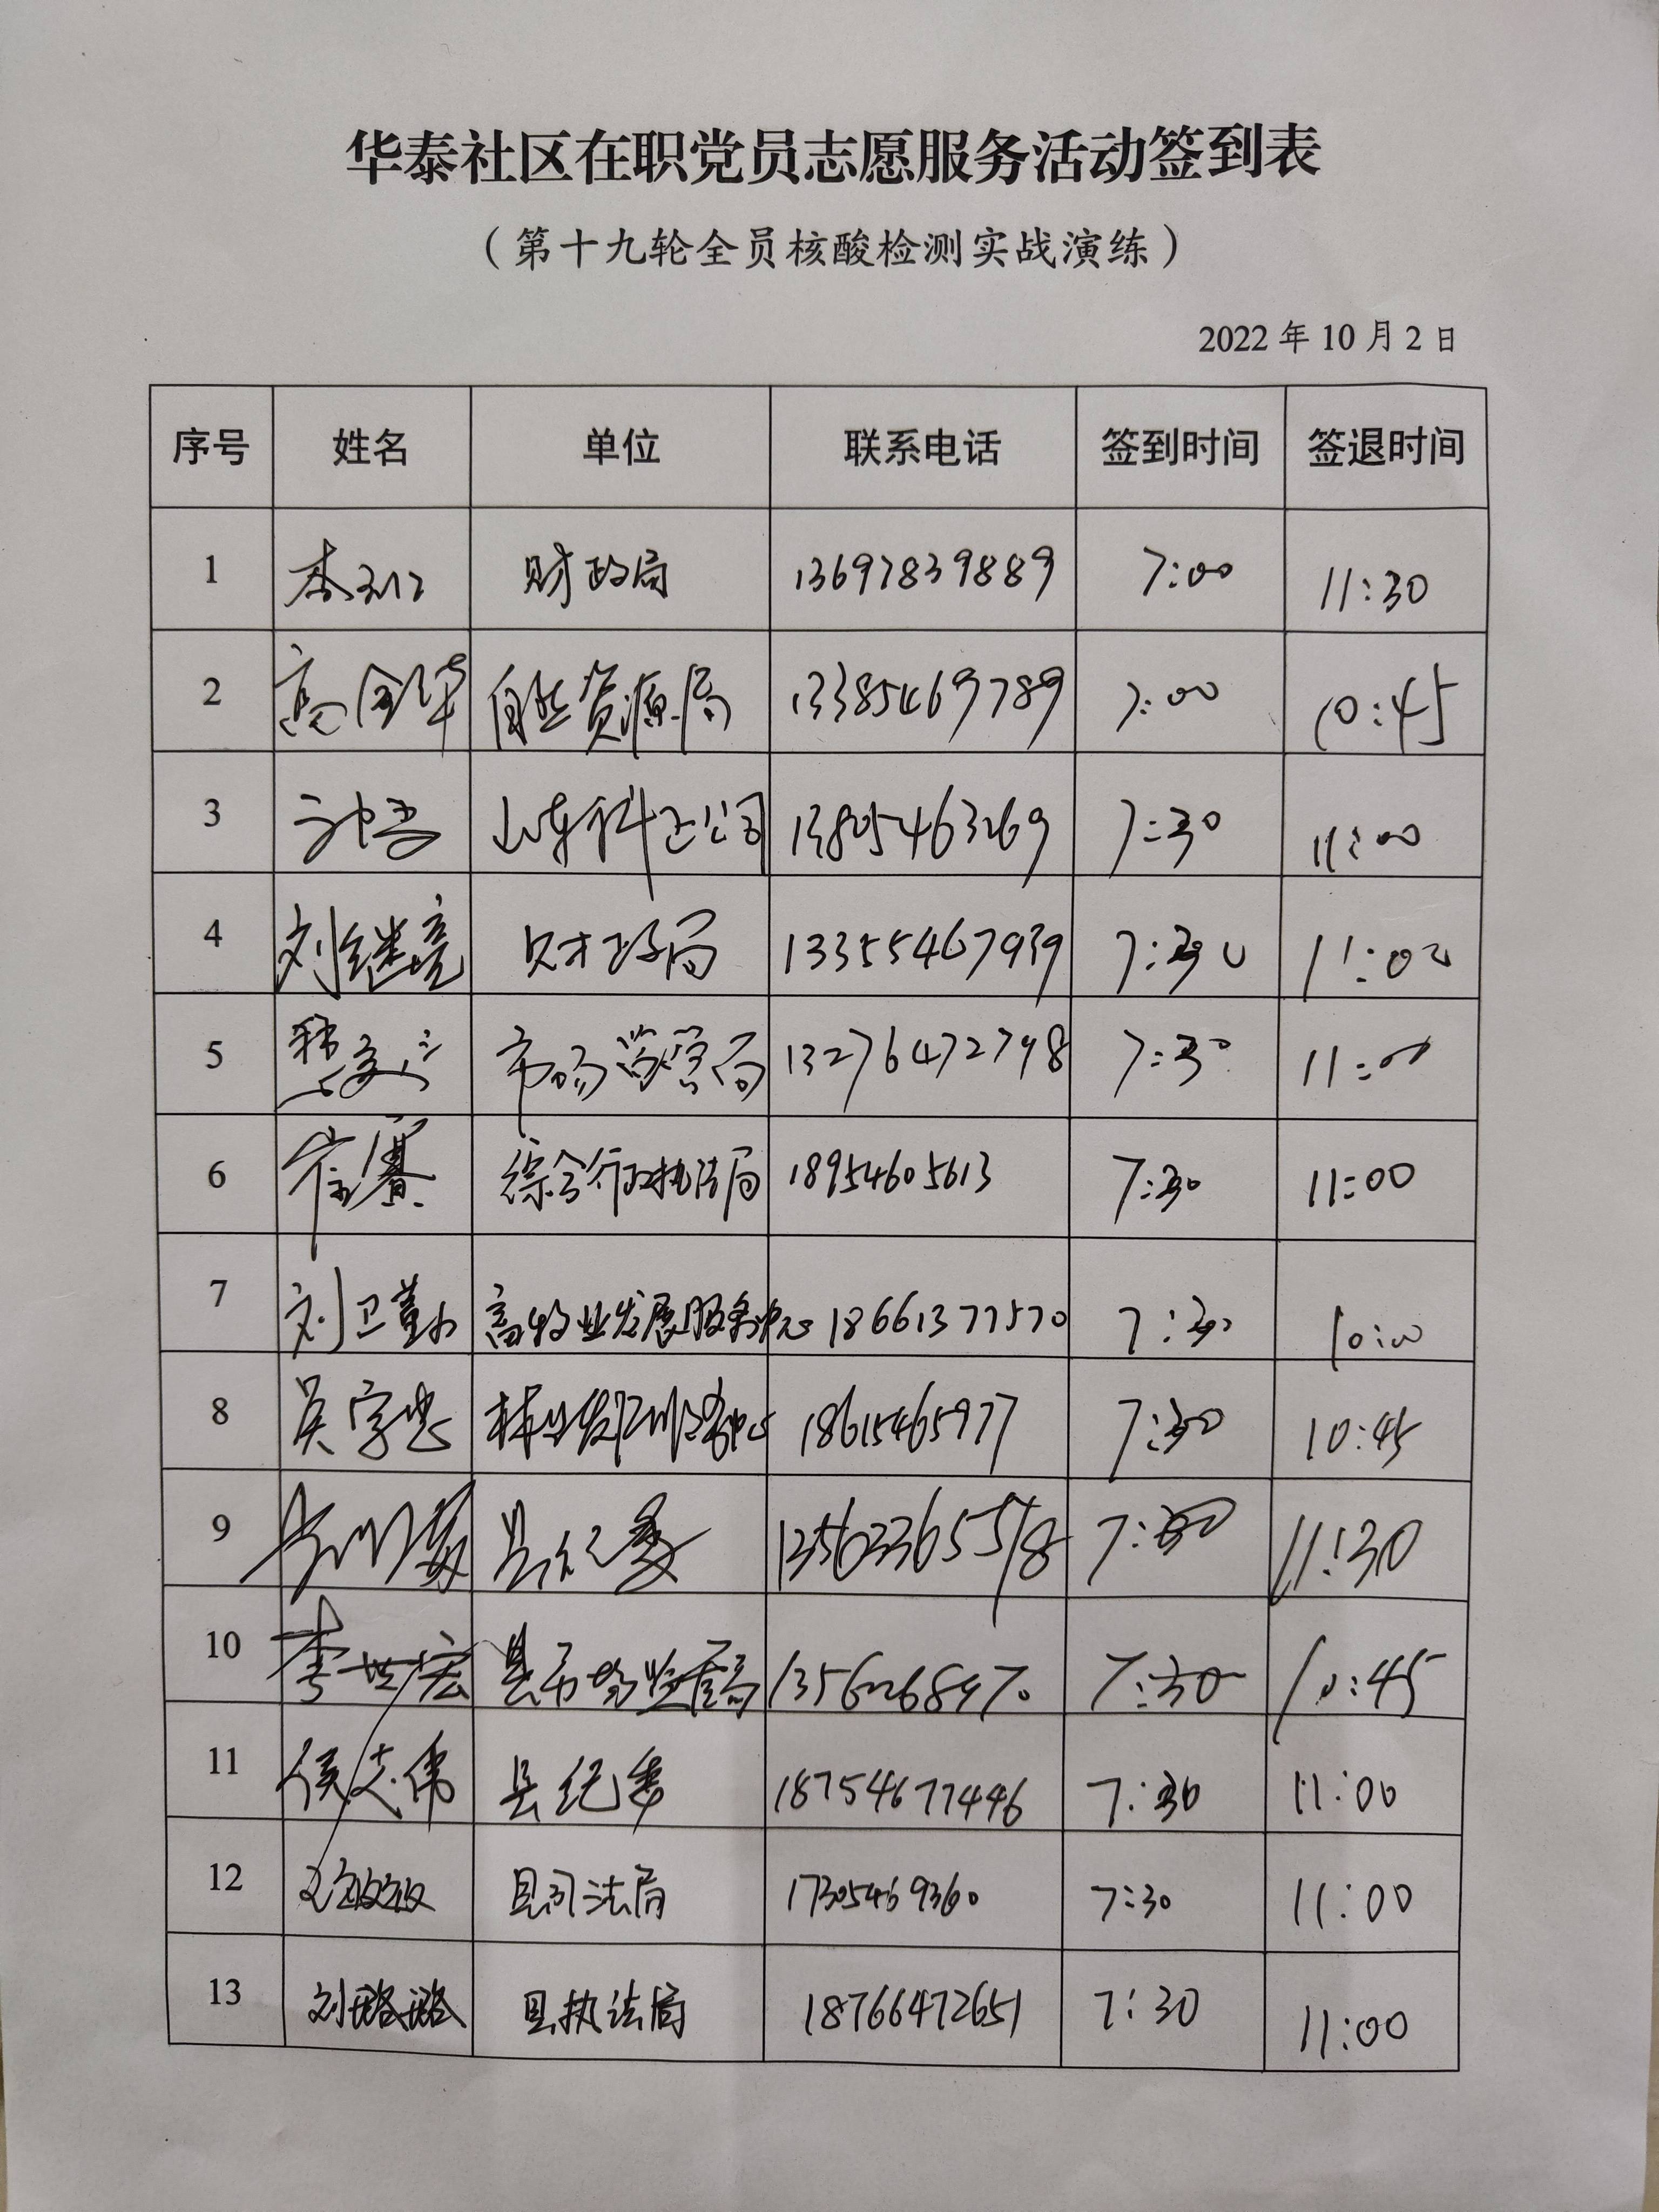 华泰社区在职党员志愿服务活动签到表
（第十九轮全员核酸检测实战演练）
2022 年 10 月 2 日
序号 姓名 单位 联系电话 签到时间 签退时间
1 财政局 13697839889 7:00 11:30
2 高金华 自然资源局 13385469789 7:00 10:45
3 公司 13805463269 7:30 11:00
4 刘继亮 财政局 13355467939 7:30 11:00
5 市场监管局 13276472798 7:30 11:00
6 综合行政执法局 18954605613 7:30 11:00
7 刘卫 畜牧业发展服务中心 18661377570 7:30 10:00
8 吴学忠 林业发展服务中心 18615465977 7:30 10:45
9 县纪委 7:30 11:30
10 李世宏 县市场监管局 7:30 10:45
11 侯志伟 县纪委 18754677446 7:30 11:00
12 县司法局 17305469360 7:30 11:00
13 刘璐璐 县执法局 18766472651 7:30 11:00